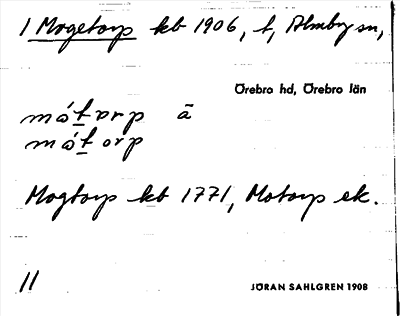 1 Mogetorp kb 1906, f, Almby sn,
Örebro hd, Örebro län
måtorp ā
måtorp
Mogtorp kb 1771, Motorp ek.
11
JÖRAN SAHLGREN 1908